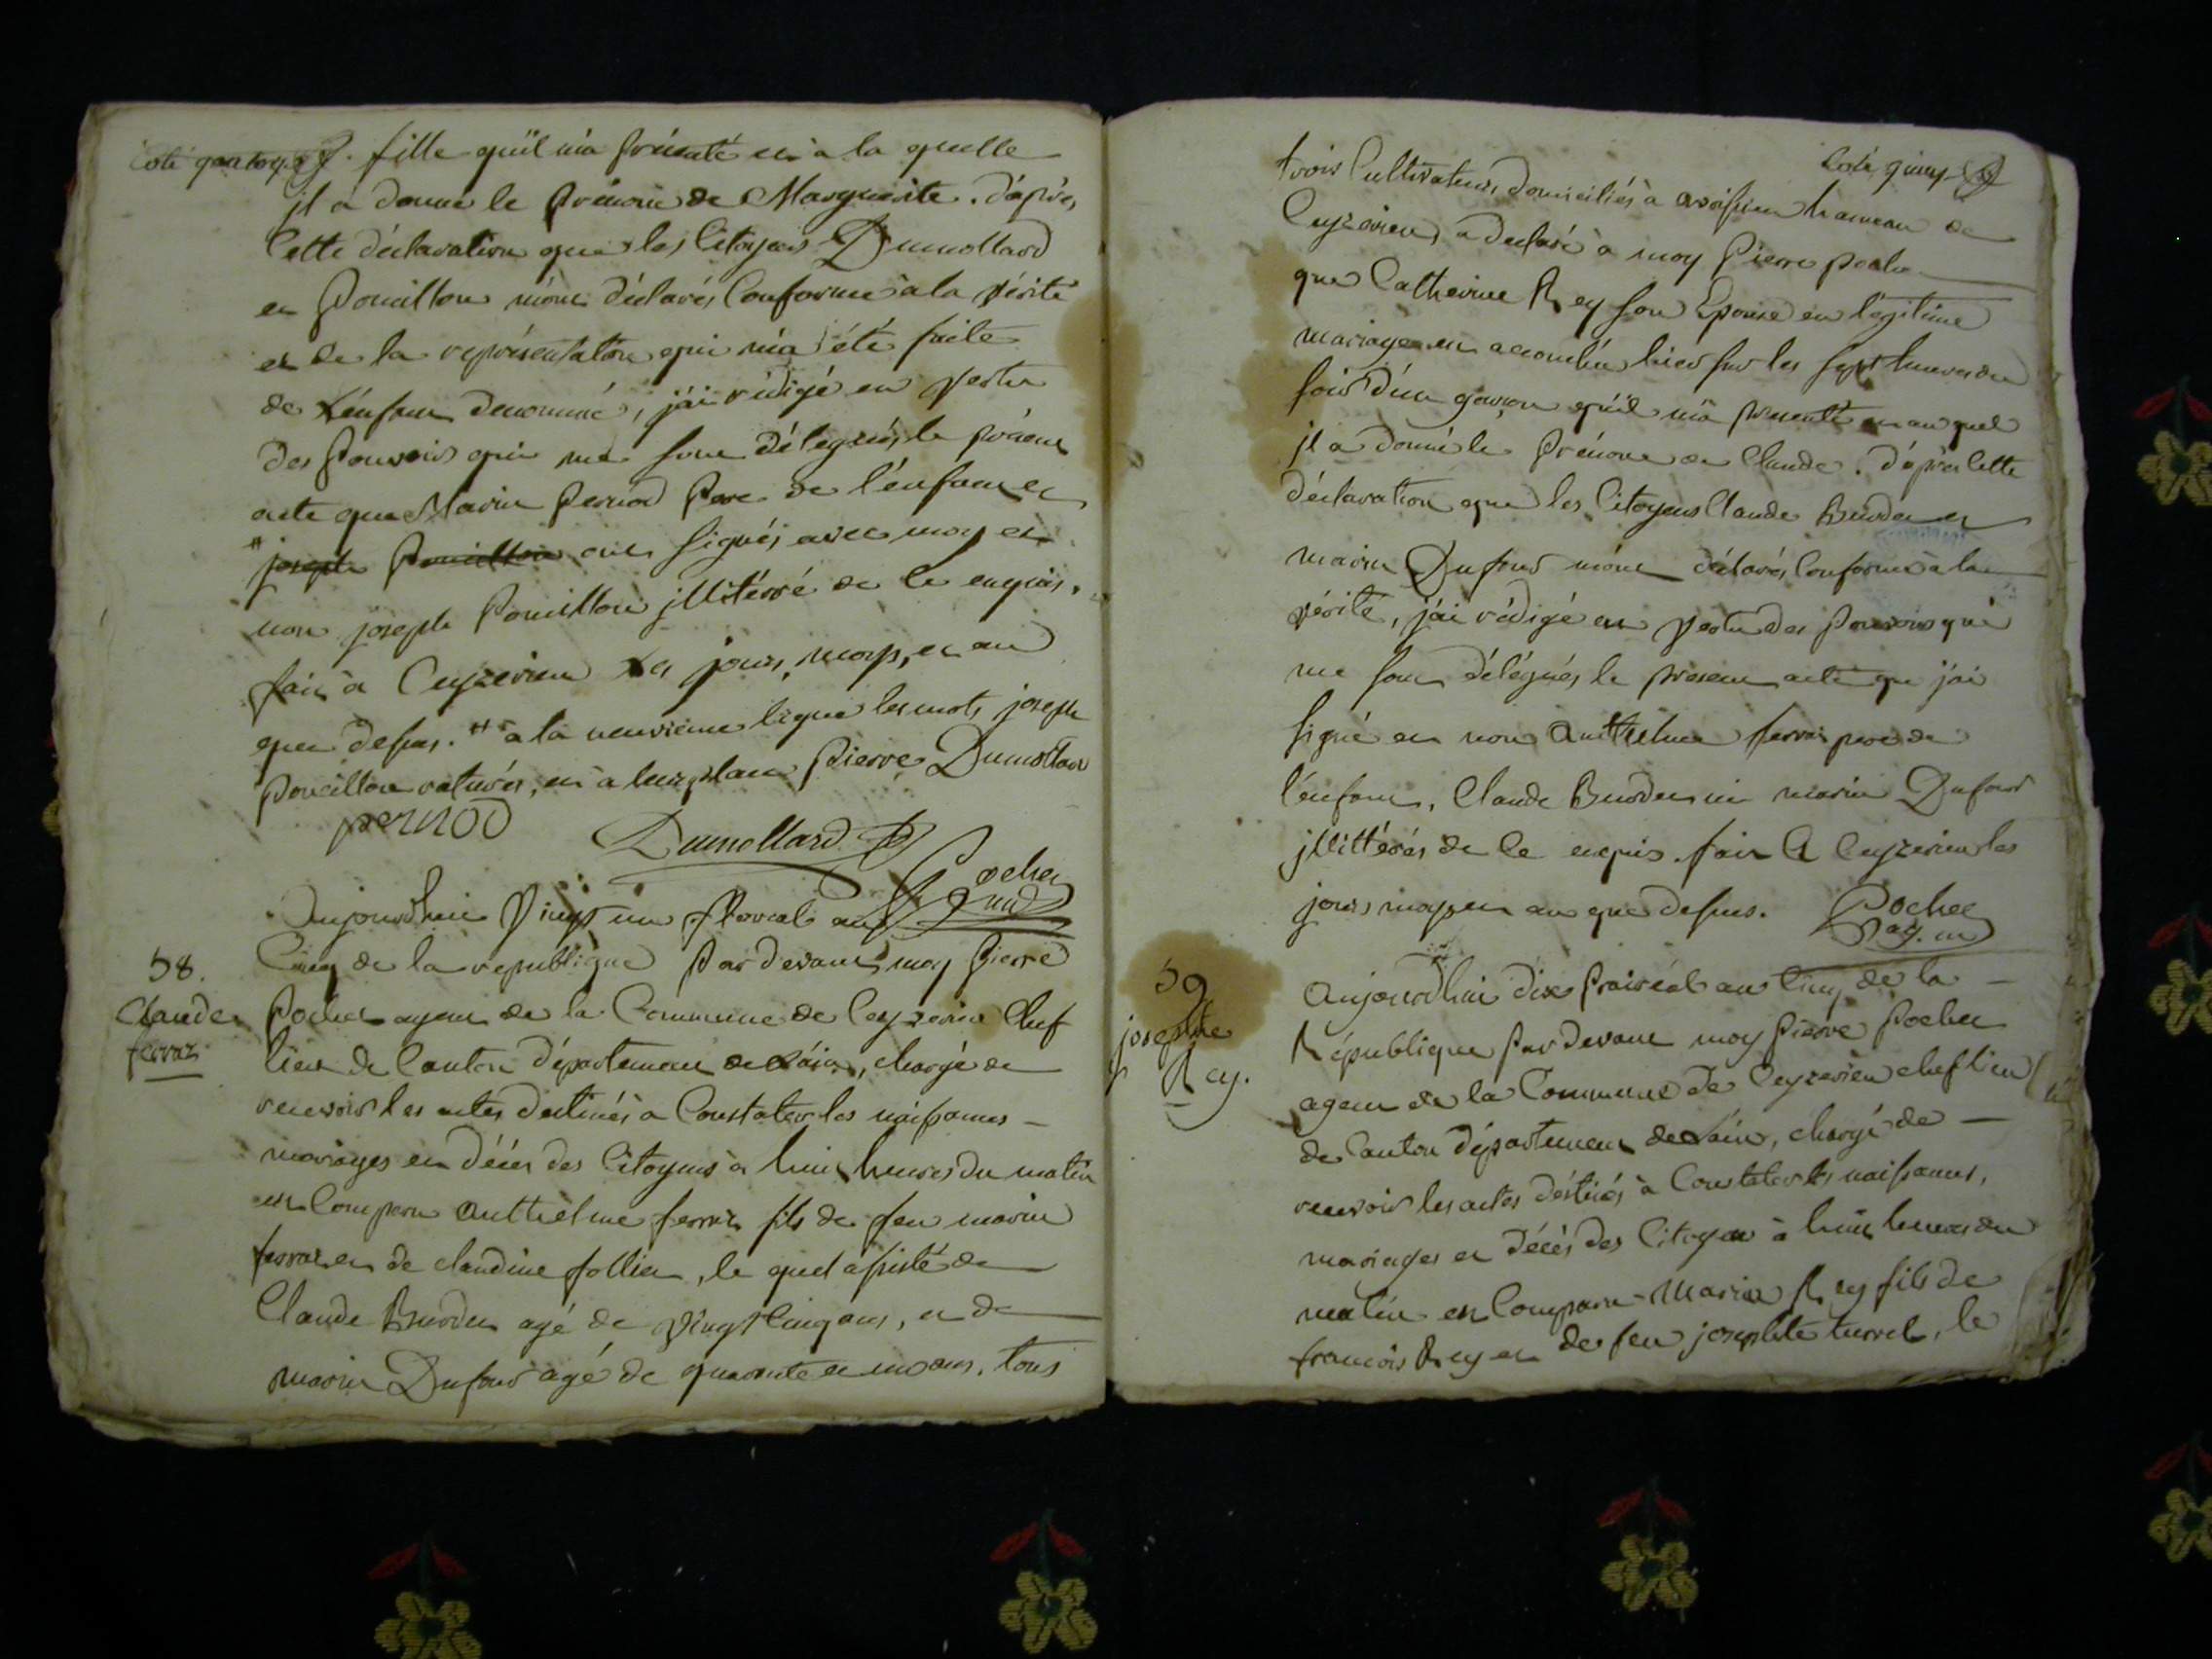 Coté quatorze fille qu'il m'a présenté et a la quelle
il a donné le prénom de Marguerite. d'après
Cette déclaration que les Citoyens Dumollard
et Pouillou m'ont déclarés Conforme à la vérité
et de la représentation qui m'a été faite
de L'enfant denommé, j'ai rédigé en vertu
des pouvoirs qui me sont délegués le présent
acte que Marin pernod Pere de l'enfant et
# joseph Pouillou ont signés avec moy et
non joseph Pouillou jllitérré de ce enquis.
fait à Ceyzerieu Les jours, moys, et an
que dessus. # a la neuvieme ligne les mots joseph
Pouillou raturés, et à leur place Pierre Dumollard
pernod
Dumollard
Pochet
agent
Aujourdhui Vingt un floreal an
Cinq de la republique Par devant moy Pierre
58.
Claude
ferraz
Pochet agent de la Commune de Ceyzerieu Chef
lieu de Canton département de Láin, chargé de
recevoir les actes destinés a Constater les naissances
mariages et décès des Citoyens a huit heures du matin
est Comparu Anthelme ferraz fils de feu marin
ferraz et de claudine follier, le quel assisté de
Claude Burdet agé de vingt Cinq ans, et de
marin Dufour agé de quarante et un ans, tous
Coté quinze
trois Cultivateurs domiciliés à avrissieu hameau de
Ceyzerieu a declaré à moy Pierre pochet
que Catherine Rey son Epouse en légitime
mariage est accouchée hier sur les sept heures du
soir d'un garçon qu'il m'a presenté et au quel
jl a donné le Prénom de Claude. d'après Cette
déclaration que les Citoyens Claude Burdet et
marin Dufour m'ont déclarés Conforme à la
vérité, j'ai rédigé en vertu des Pouvoirs qui
me sont délégués le present acte que j'ai
signé et non Anthelme ferraz pere de
l'enfant, Claude Burdet ni marin Dufour
jllittérés de ce enquis. fait A Ceyzerieu les
jours moys et an que dessus.
Pochet
ag.
59
josephte
Rey.
Aujourdhui dix Prairéal an Cinq de la
République Par devant moy Pierre Pochet
agent de la Commune de Ceyzerieu chef lieu
de Canton département de Láin, chargé de
recevoir les actes déstinés à Constater les naissances,
mariages et décès des Citoyens à huit heures du
matin est Comparu Marin Rey fils de
francois Rey et de feu josephte turrel, le